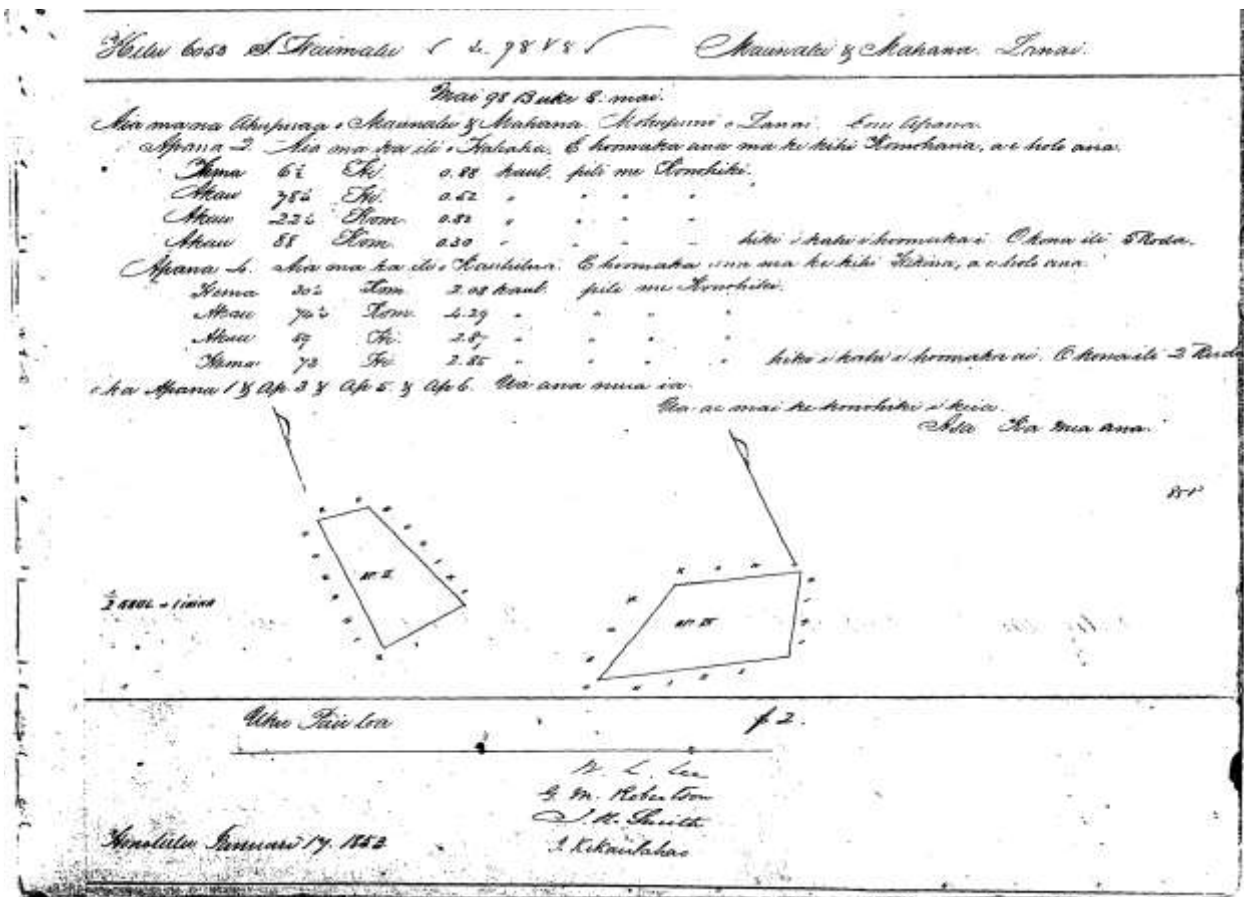 Helu 6053 S. Waimalu √ 2. 98 V 8 √ Maunalei & Mahana. Lanai.
Mai 98 Buke 8. mai.
Aia ma na Ahupuaa o Maunalei & Mahana. Mokupuni o Lanai. Eono Apana.
Apana 2. Aia ma ka ili o Kalaha. E hoomaka ana ma ke kihi Komohana, a e holo ana.
Hema 6½ Hi. 0.88 kaul. pili me Konohiki.
Akau 78½ Hi. 0.52 " " " "
Akau 22½ Kom. 0.82 " " " "
Akau 88 Kom. 0.30 " " " " hiki i kahi i hoomaka i. O kona ili 5 Roda.
Apana 4. Aia ma ka ili o Kauhihua. E hoomaka ana ma ke kihi Hikina, a e holo ana
Hema 30½ Kom 2.08 kaul. pili me Konohiki.
Akau 74½ Kom. 4.29 " " " "
Akau 59 Hi. 2.87 " " " "
Hema 73 Hi. 2.85 " " " " hiki i kahi i hoomaka ai. O kona ili 2 Rud
o ka Apana 1 & Ap. 3 & Ap 5. & Ap 6. Ua ana mua ia.
Ua ae mai ke konohiki i keia.
Asa Ka mea ana.
AP. II
AP. IV
½ KAUL = 1 iniha
Uku Pau loa $2.
W. L. Lee
G. M. Robertson
J. H. Smith
J. Kekaulahao
Honolulu Januari 17. 1853